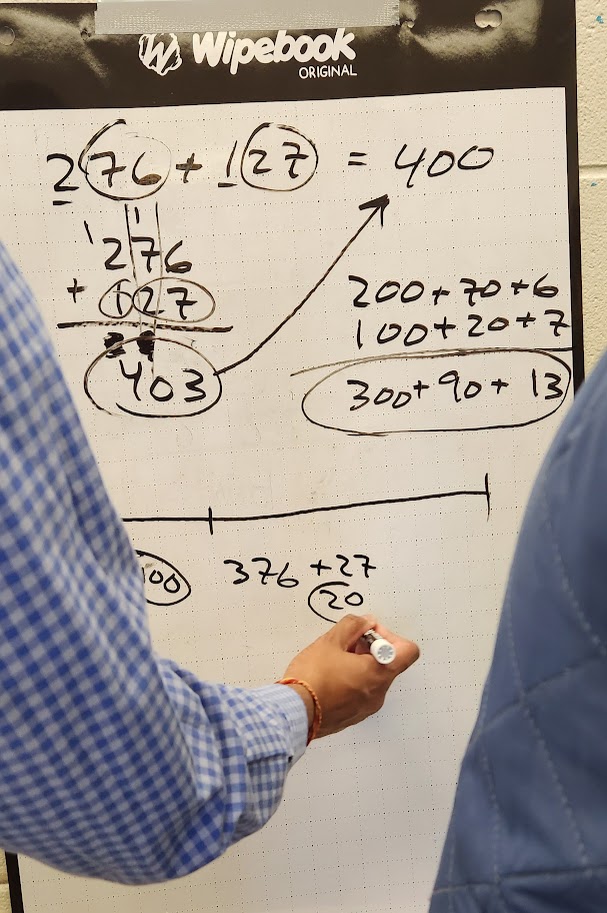 Wipebook
ORIGINAL
276 + 127 = 400
1 1
276
+ 127
403
200+70+6
100+20+7
300+90+13
100
376 +27
20